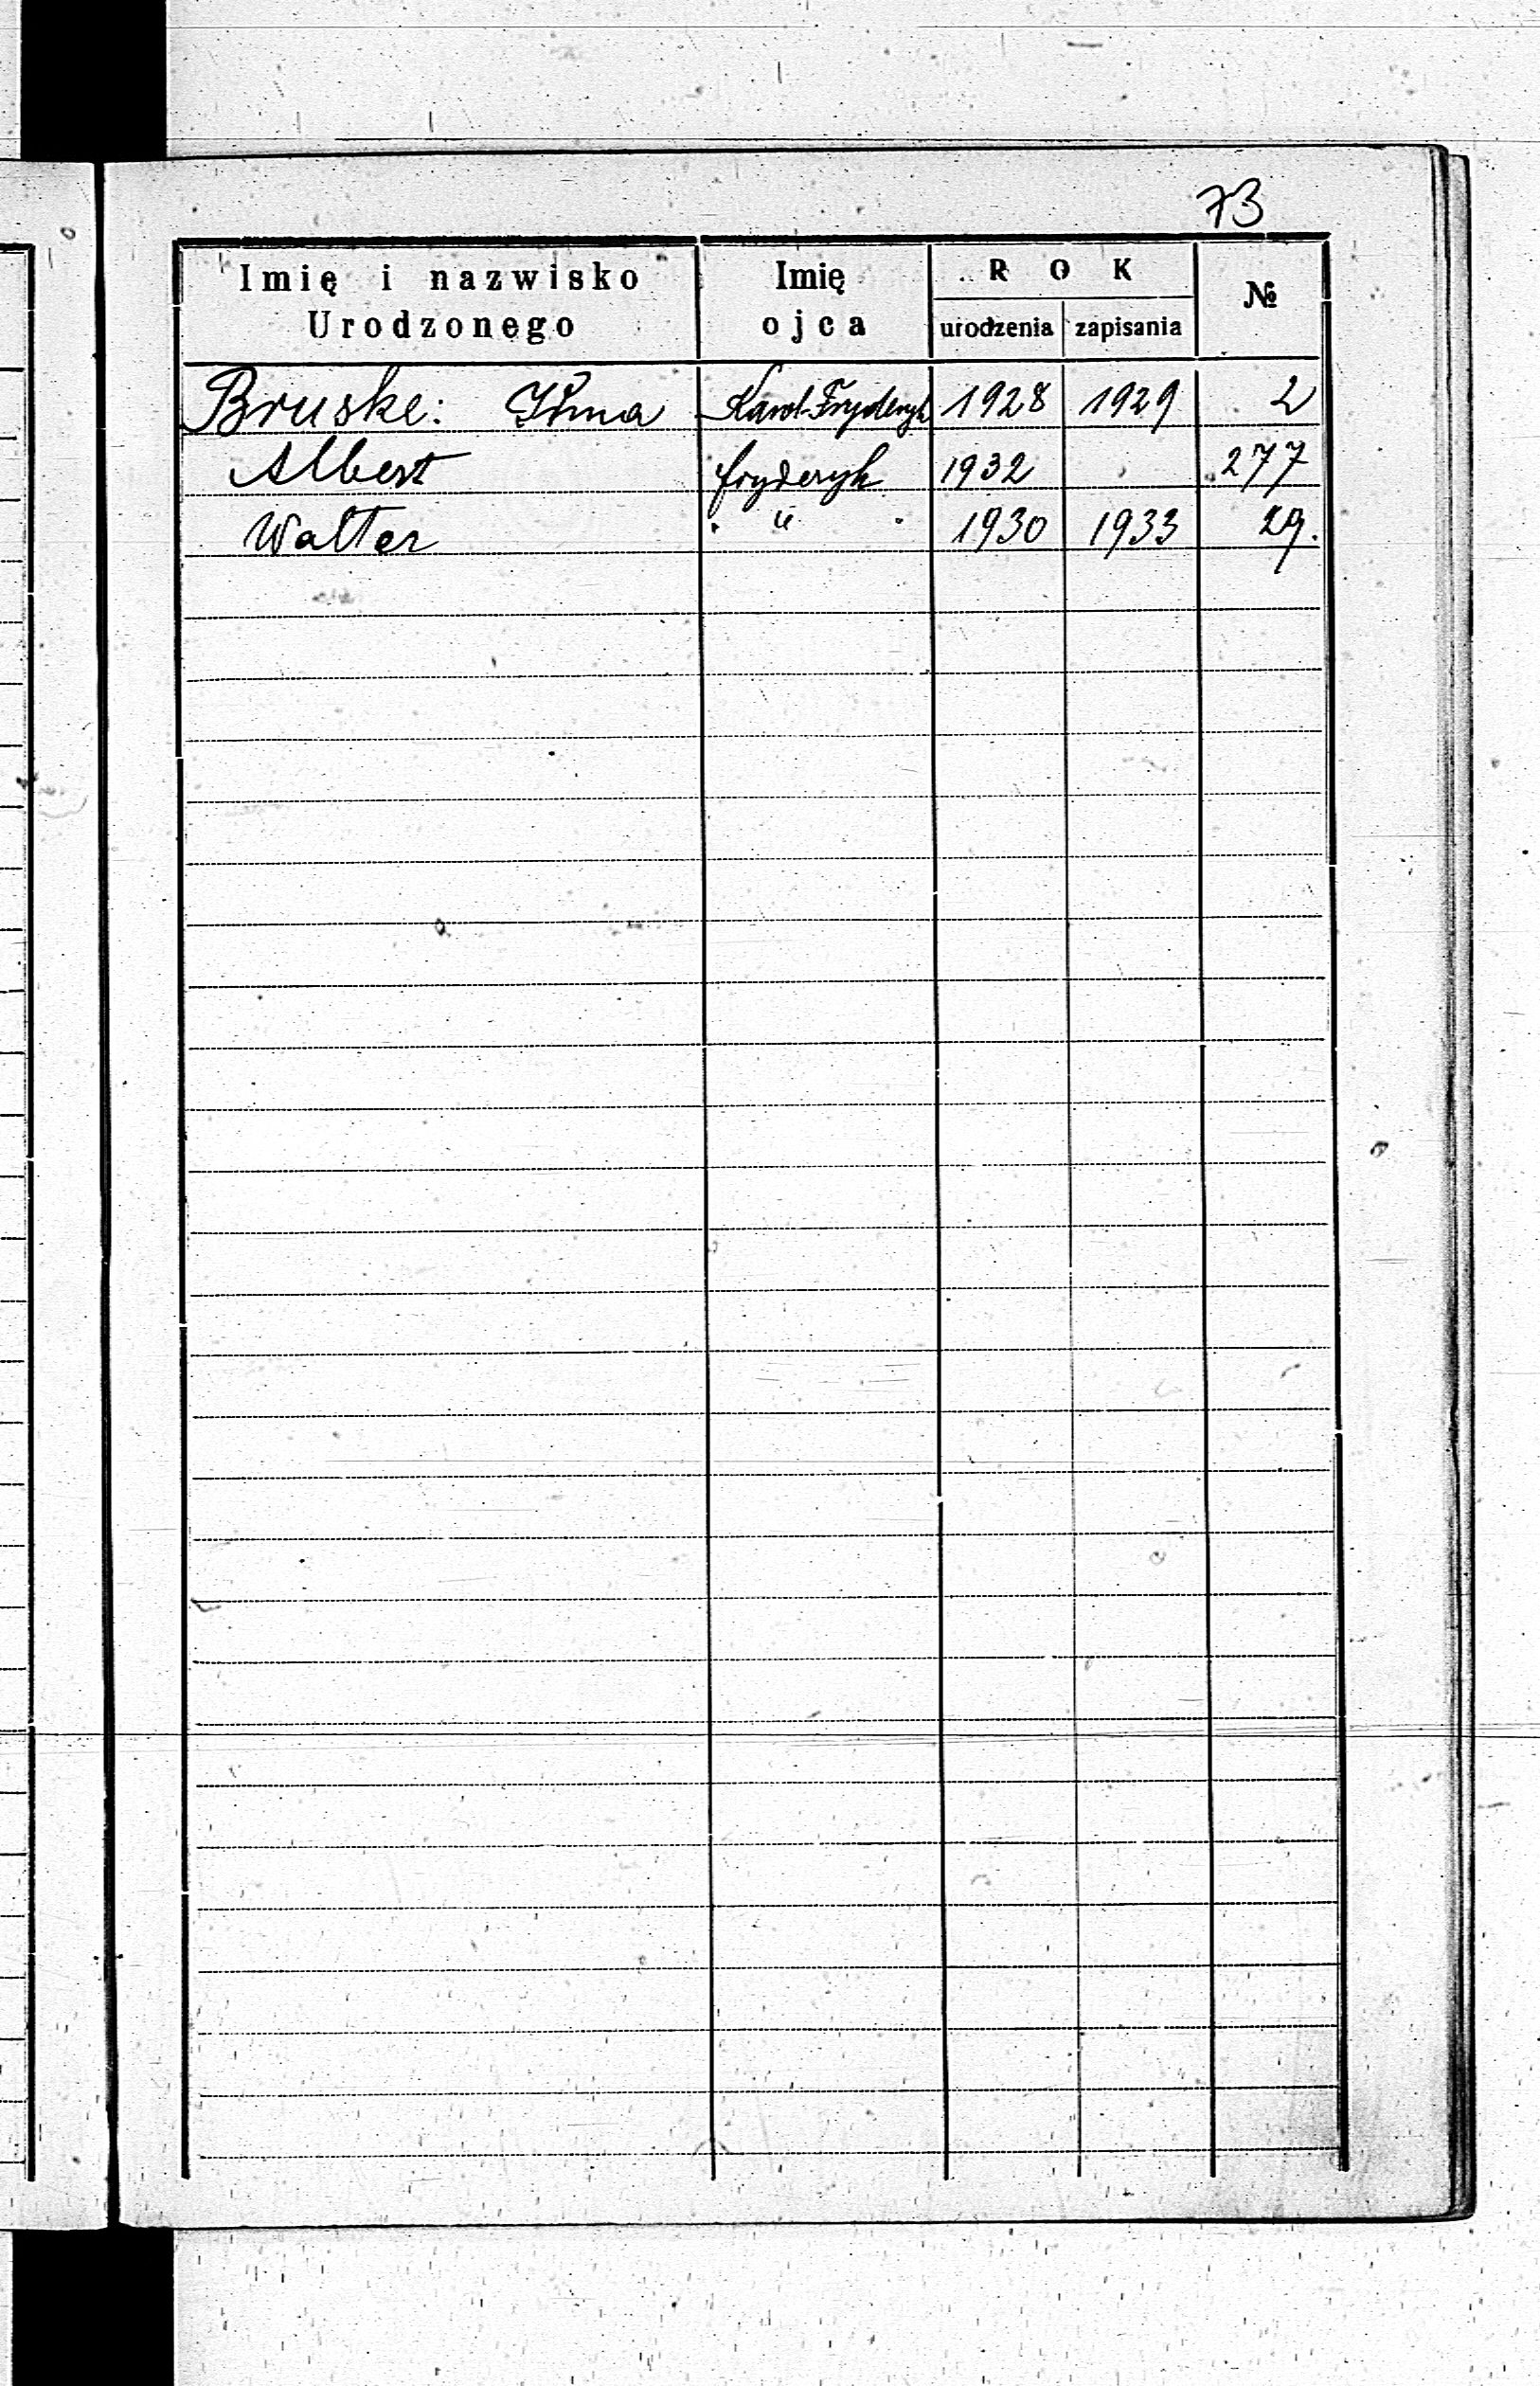 73
Imię i nazwisko Urodzonego Imię ojca ROK urodzenia zapisania №
Bruske: Irma Karol-Fryderyk 1928 1929 2
Albert fryderyk 1932 277
Walter " 1930 1933 29.